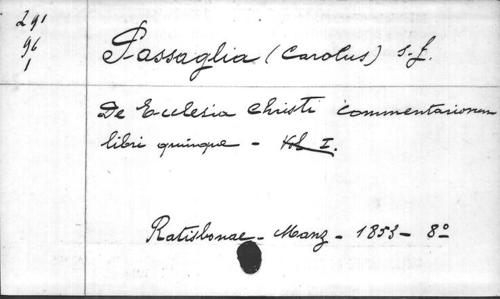 291
96
1
Passaglia (Carolus) s. j.
De Ecclesia Christi Commentariorum
libri quinque - Vol I.
Ratisbonae - Manz - 1853 - 8º